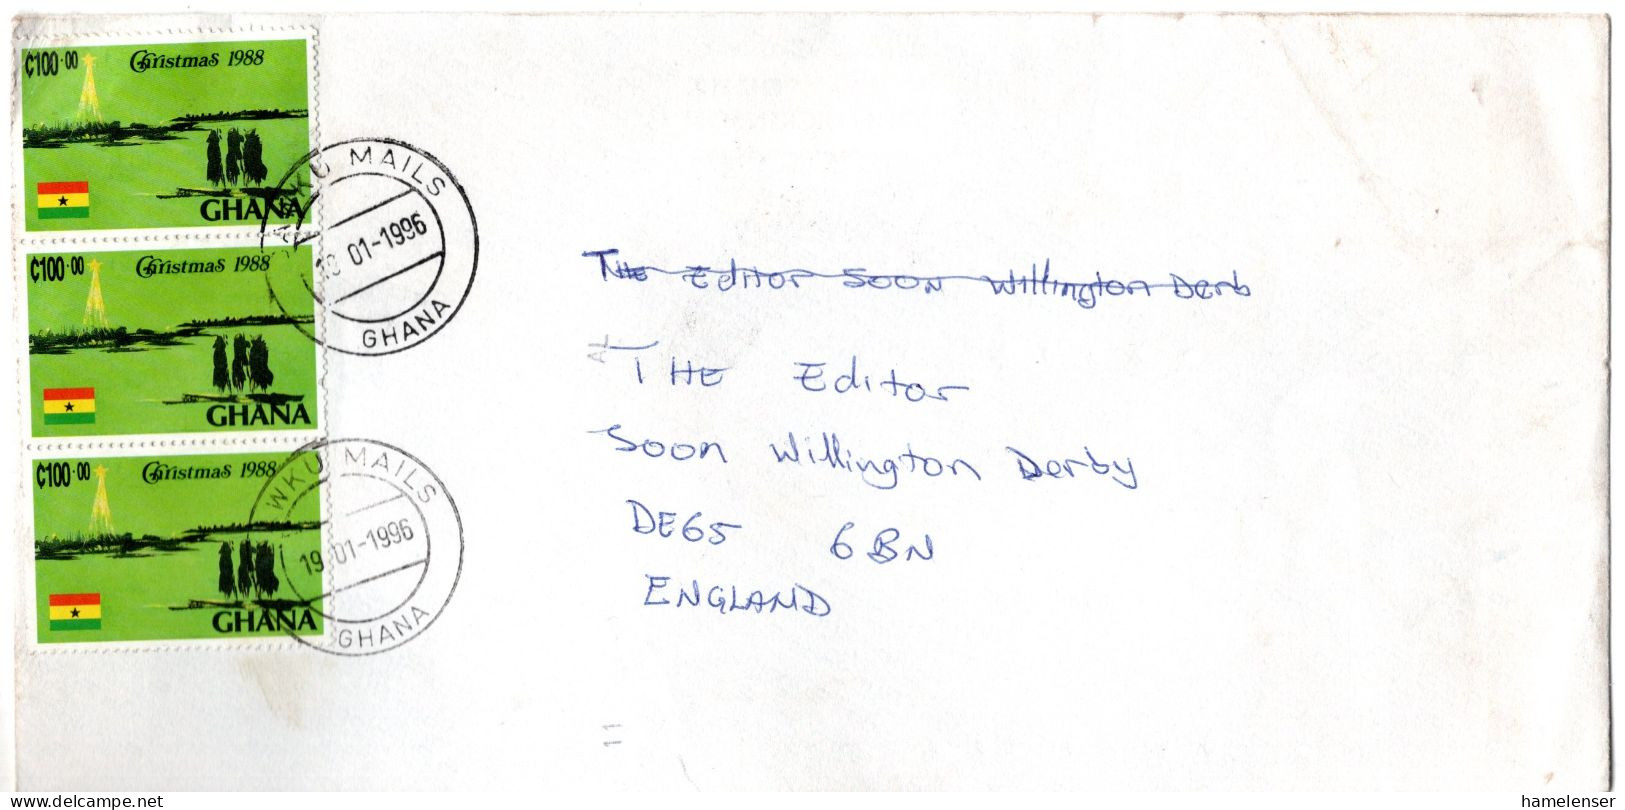 ¢100·00 Christmas 1988
GHANA
MAILS
01-1996
GHANA
¢100·00 Christmas 1988
GHANA
¢100·00 Christmas 1988
GHANA
WKU MAILS
19 01-1996
GHANA
The Editor Soon Willington Derb
THE Editor
Soon Willington Derby
DE65 6BN
ENGLAND
11
www.delcampe.net
hamelenser